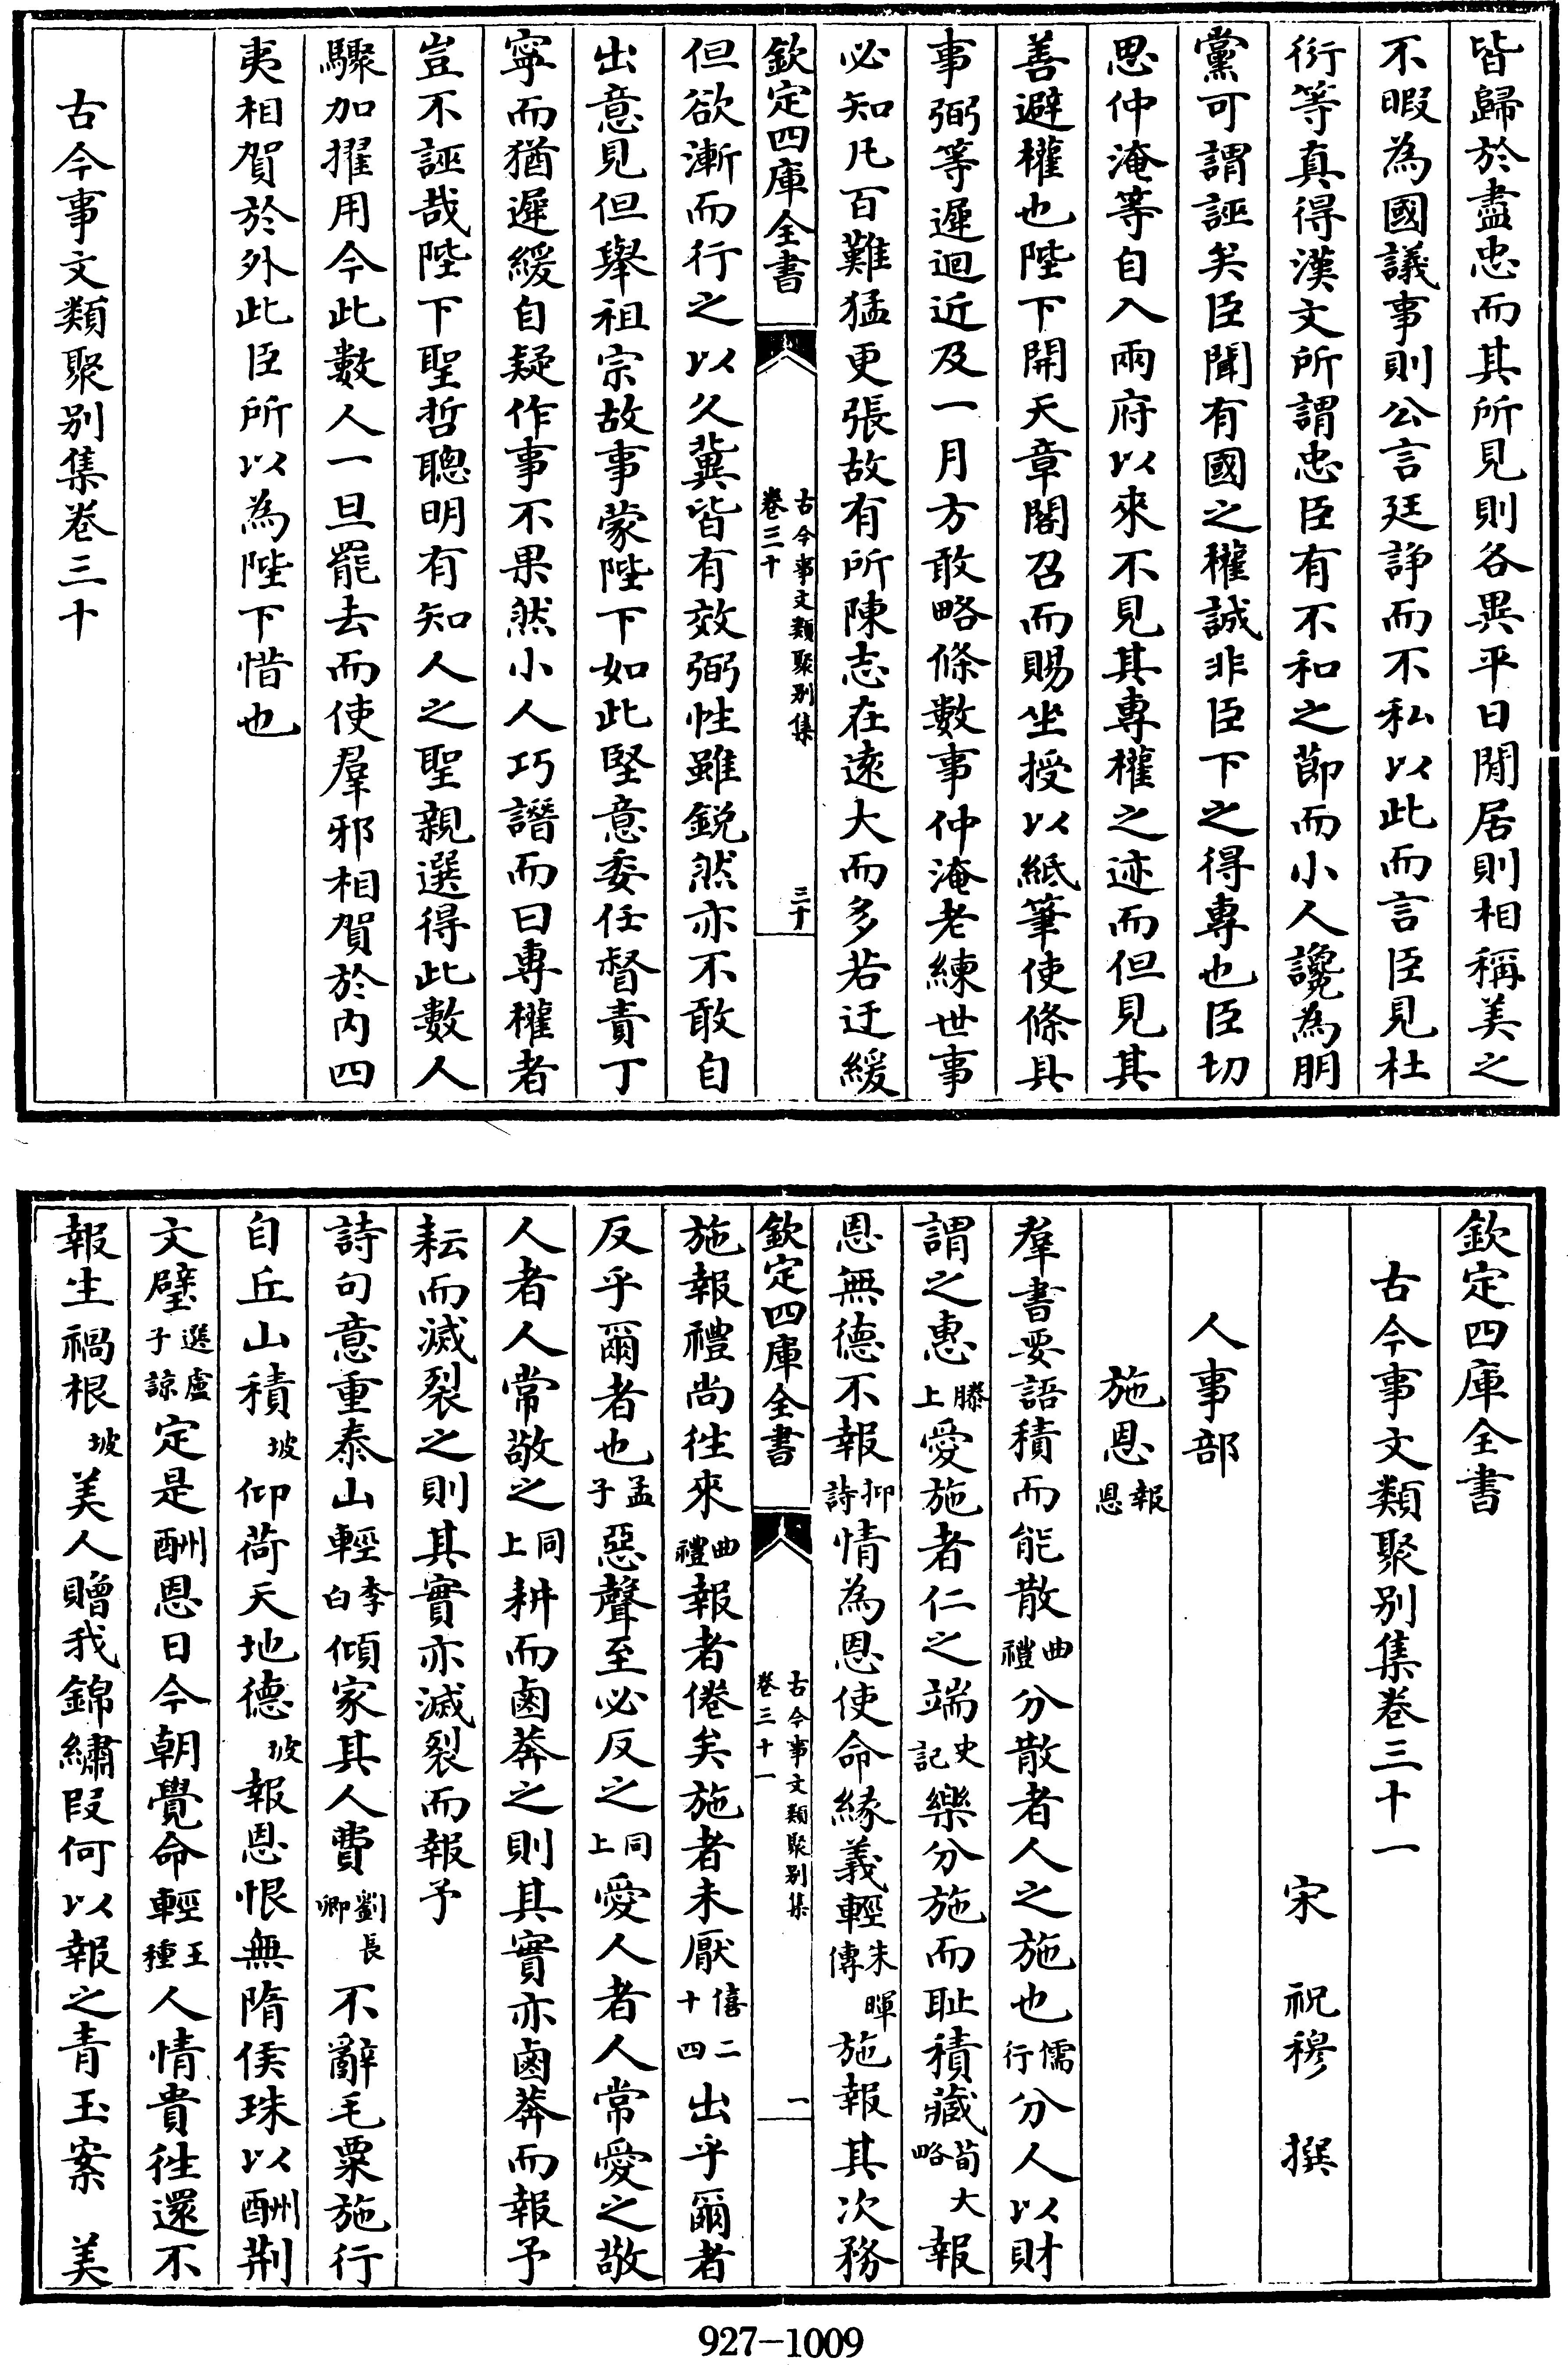 皆歸於盡忠而其所見則各異平日閒居則相稱美之
不暇為國議事則公言廷諍而不私以此而言臣見杜
衍等真得漢文所謂忠臣有不和之節而小人讒為朋
黨可謂誣矣臣聞有國之權誠非臣下之得專也臣切
思仲淹等自入兩府以來不見其專權之迹而但見其
善避權也陛下開天章閣召而賜坐授以紙筆使條具
事弼等遲迴近及一月方敢略條數事仲淹老練世事
必知凡百難猛更張故有所陳志在遠大而多若迂緩
欽定四庫全書
古今事文類聚别集
卷三十
三十
但欲漸而行之以久冀皆有效弼性雖銳然亦不敢自
出意見但舉祖宗故事蒙陛下如此堅意委任督責丁
寧而猶遲緩自疑作事不果然小人巧譖而曰專權者
豈不誣哉陛下聖哲聰明有知人之聖親選得此數人
驟加擢用今此數人一旦罷去而使羣邪相賀於内四
夷相賀於外此臣所以為陛下惜也
古今事文類聚别集卷三十
欽定四庫全書
古今事文類聚别集卷三十一
宋 祝穆 撰
人事部
施恩報恩
羣書要語積而能散曲禮分散者人之施也儒行分人以財
謂之惠滕上愛施者仁之端史記樂分施而耻積藏荀大略報
恩無德不報抑詩情為恩使命緣義輕朱暉傳施報其次務
欽定四庫全書
古今事文類聚别集
卷三十一
一
施報禮尚往來曲禮報者倦矣施者未厭僖二十四出乎爾者
反乎爾者也孟子惡聲至必反之同上愛人者人常愛之敬
人者人常敬之同上耕而鹵莽之則其實亦鹵莽而報予
耘而滅裂之則其實亦滅裂而報予
詩句意重泰山輕李白傾家其人費劉長卿不辭毛粟施行
自丘山積坡仰荷天地德坡報恩恨無隋侯珠以酬荆
文璧選盧子諒定是酬恩日今朝覺命輕王種人情貴往還不
報生禍根坡美人贈我錦繡段何以報之青玉案 美
927-1009